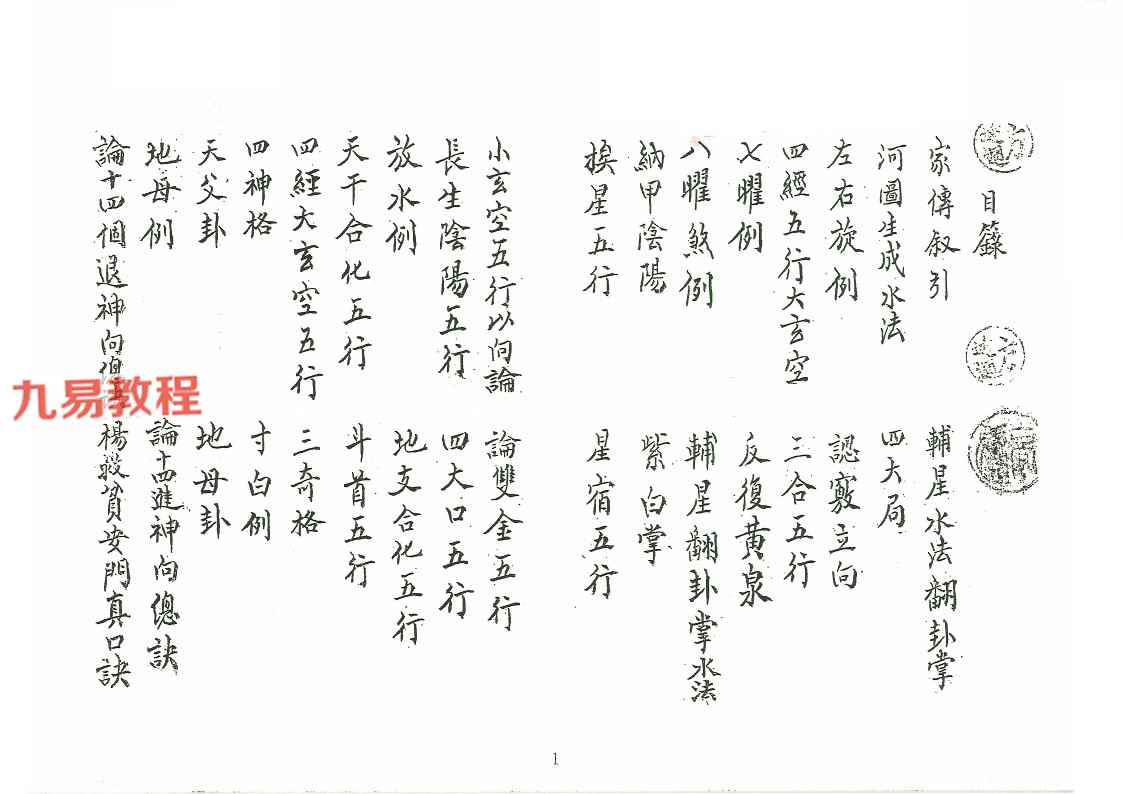 目籙
家傳叙引 輔星水法翻卦掌
河圖生成水法 四大局
左右旋例 認竅立向
四經五行大玄空 三合五行
七曜例 反復黃泉
八曜煞例 輔星翻卦掌水法
納甲陰陽 紫白掌
挨星五行 星宿五行
小玄空五行以向論 論雙金五行
長生陰陽五行 四大口五行
放水例 地支合化五行
天干合化五行 斗首五行
四經大玄空五行 三奇格
四神格 寸白例
天父卦 地母卦
地母例 論十四進神向總訣
論十四個退神向 楊救貧安門真口訣
九易教程
1